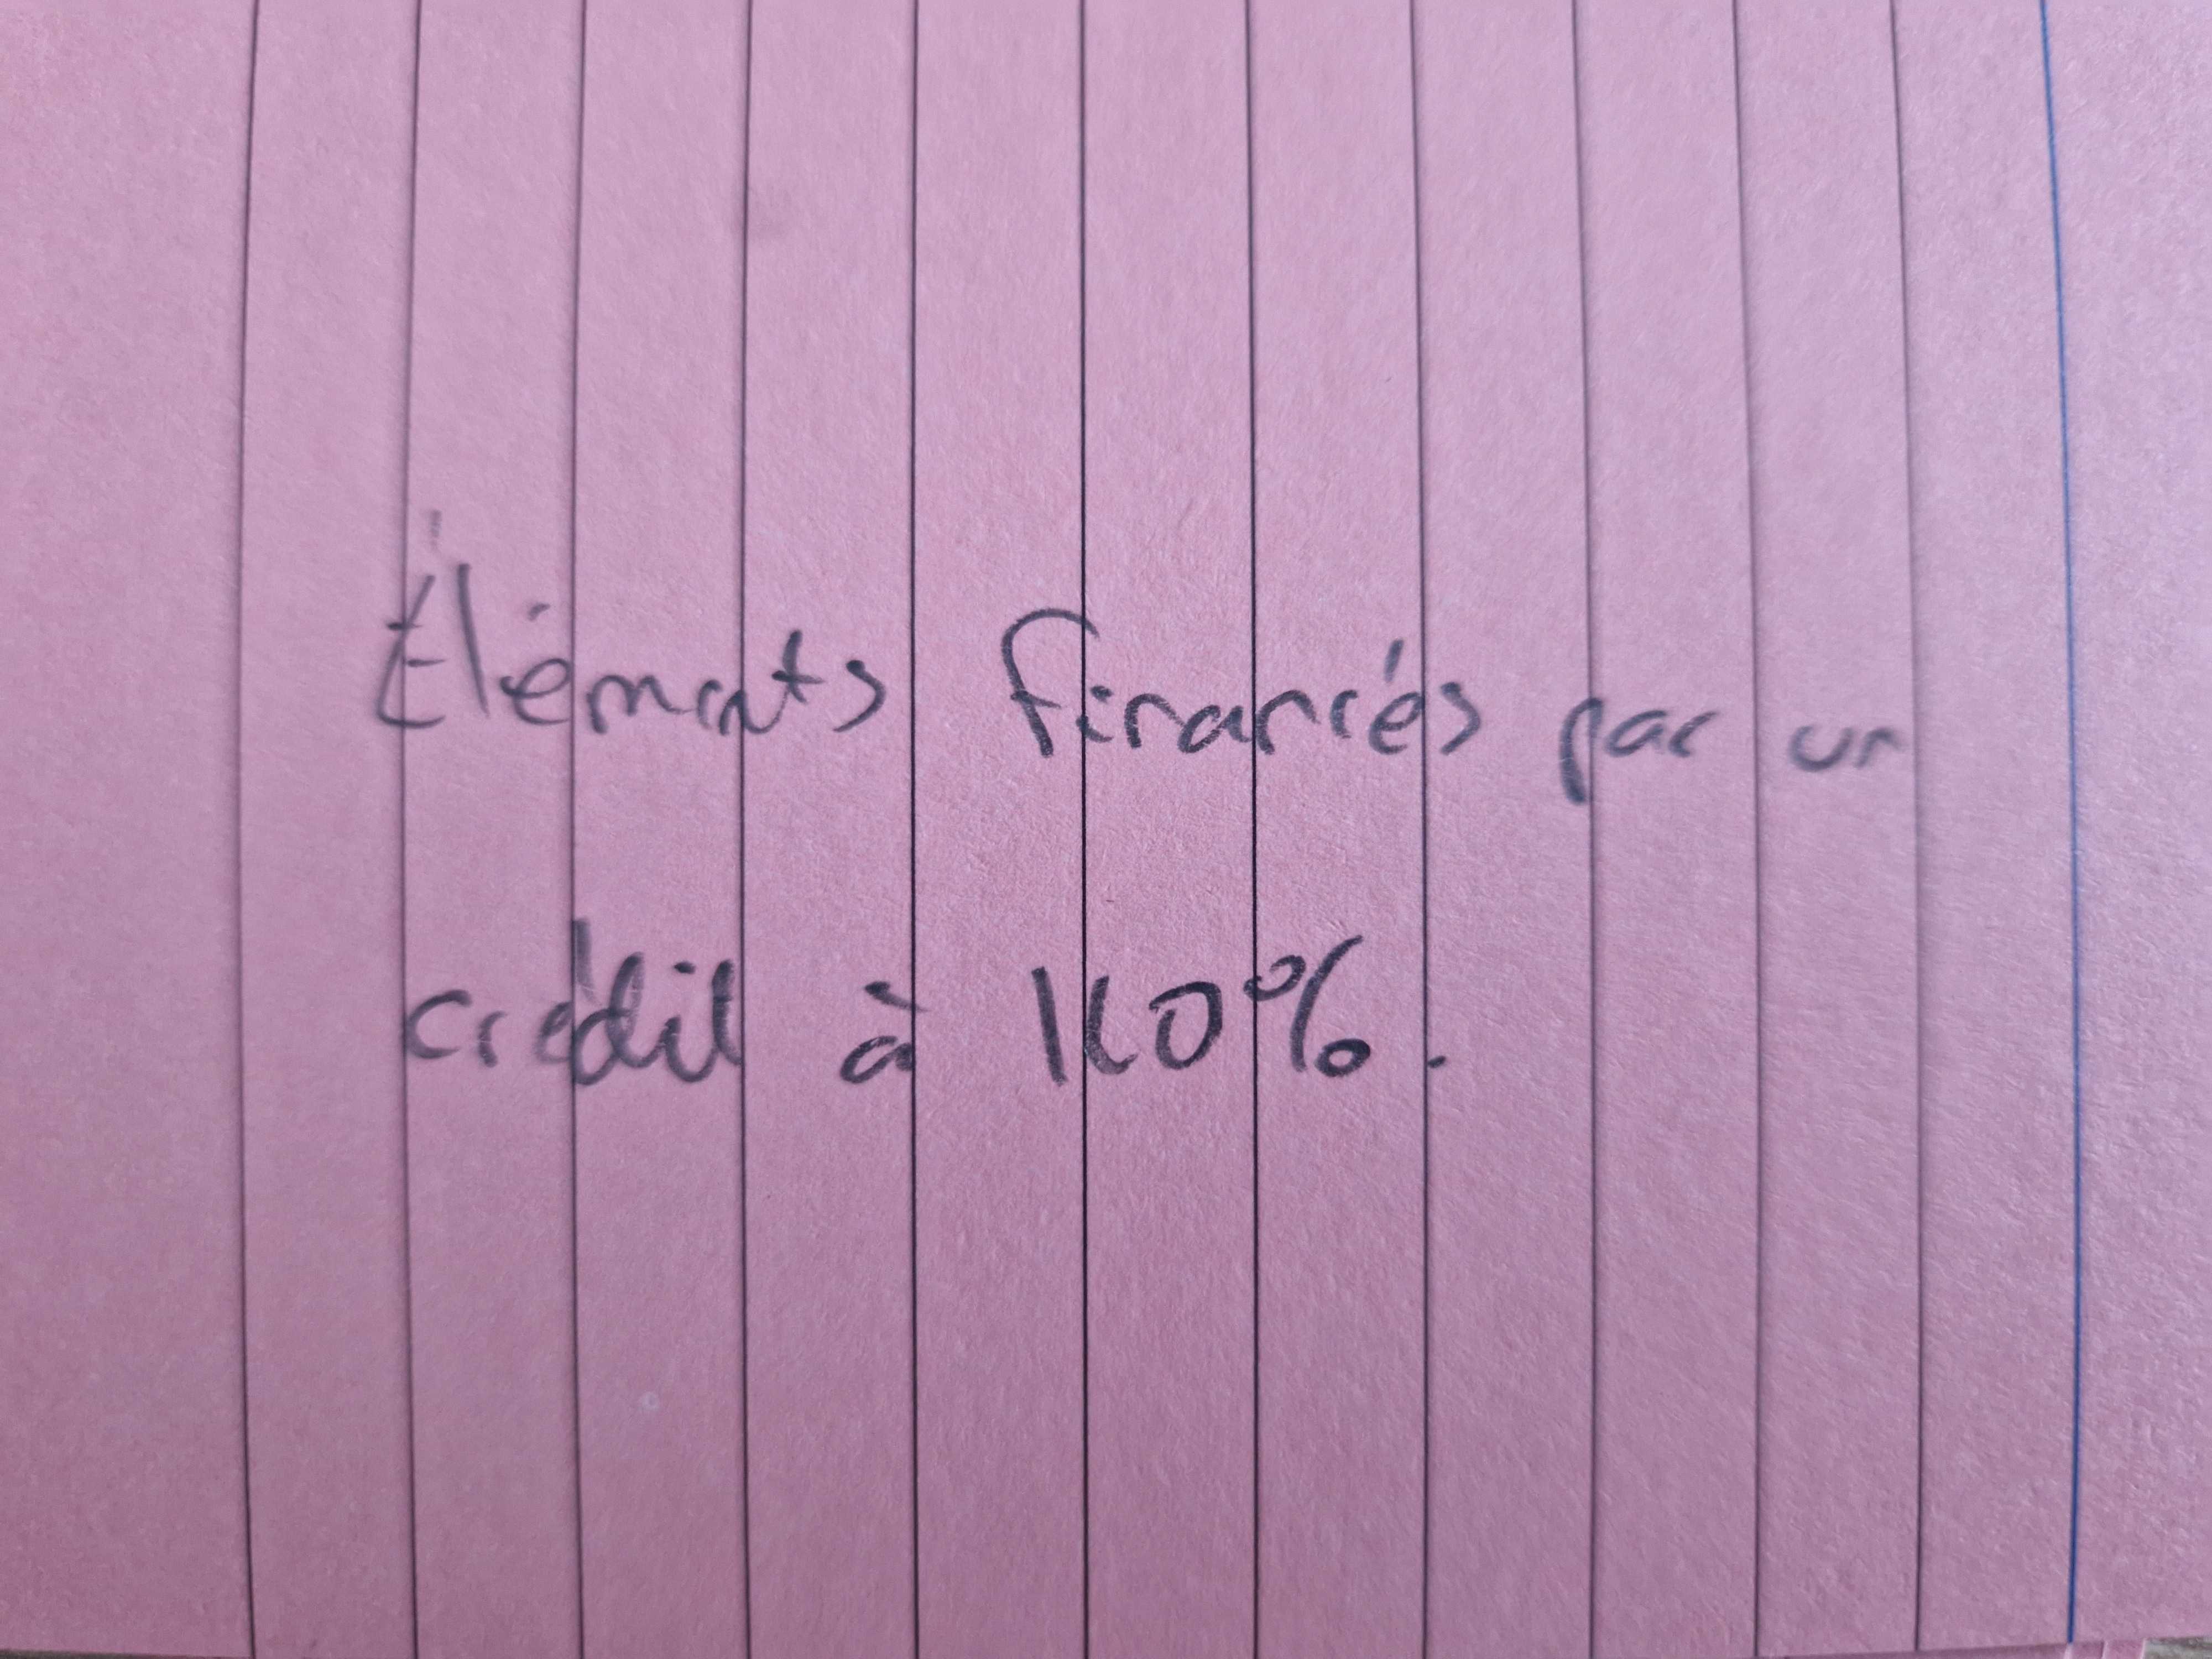 Éléments financés par un
crédit à 110%.